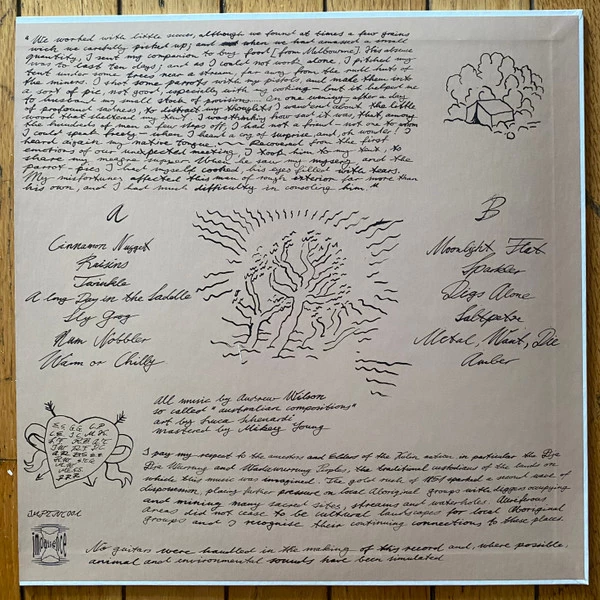 "We worked with little success, although we found at times a few grains
which we carefully picked up; and when we had amassed a small
quantity, I sent my companion to buy food [from Melbourne]. His absence
was to last ten days, and as I could not work alone, I pitched my
tent under some trees near a stream far away from the
the miners. I shot some parrots with my pistol, and made them into
a sort of pie, not good, especially with my cooking - but it helped me
to husband my small stock of provisions. On one evening after a day
of profound sadness, to distract my thoughts I went about the little
wood that sheltered my tent. I was thinking how sad it was, that among
the hundreds of men a few steps off, I had not a friend - not one to whom
I could speak freely - when I heard a cry of surprise, and, oh wonder! I
heard again my native tongue. Recovered from the first
emotions of our unexpected meeting, I took him to my tent, to
share my meagre supper. When he saw my misery, and the
parrot-pies I had myself cooked, his eyes filled with tears.
My misfortunes affected this man of rough exterior far more than
his own, and I had much difficulty in consoling him."
A
Cinnamon Nugget
Raisins
Twinkle
A long Day in the Saddle
Sly Grog
Rum Nobbler
Warm or Chilly
B
Moonlight Flat
Sparkler
Digs Alone
Saltpeter
Metal, Want, Die
Amber
All music by Andrew Wilson
so called "australian compositions"
art by Luca Schenardi
mastered by Mikey Young
I pay my respect to the ancestors and Elders of the Kulin nation, in particular the Dja
Dja Wurrung and Wadawurrung Peoples, the traditional custodians of the lands on
which this music was imagined. The gold rush of 1851 sparked a second wave of
dispossession, placing further pressure on local Aboriginal groups with diggers occupying
and mining many sacred sites, streams and waterholes. Auriferous
areas did not cease to be cultural landscapes for local Aboriginal
groups and I recognise their continuing connections to these places.
impatience
No guitars were handled in the making of this record and, where possible,
animal and environmental sounds have been simulated